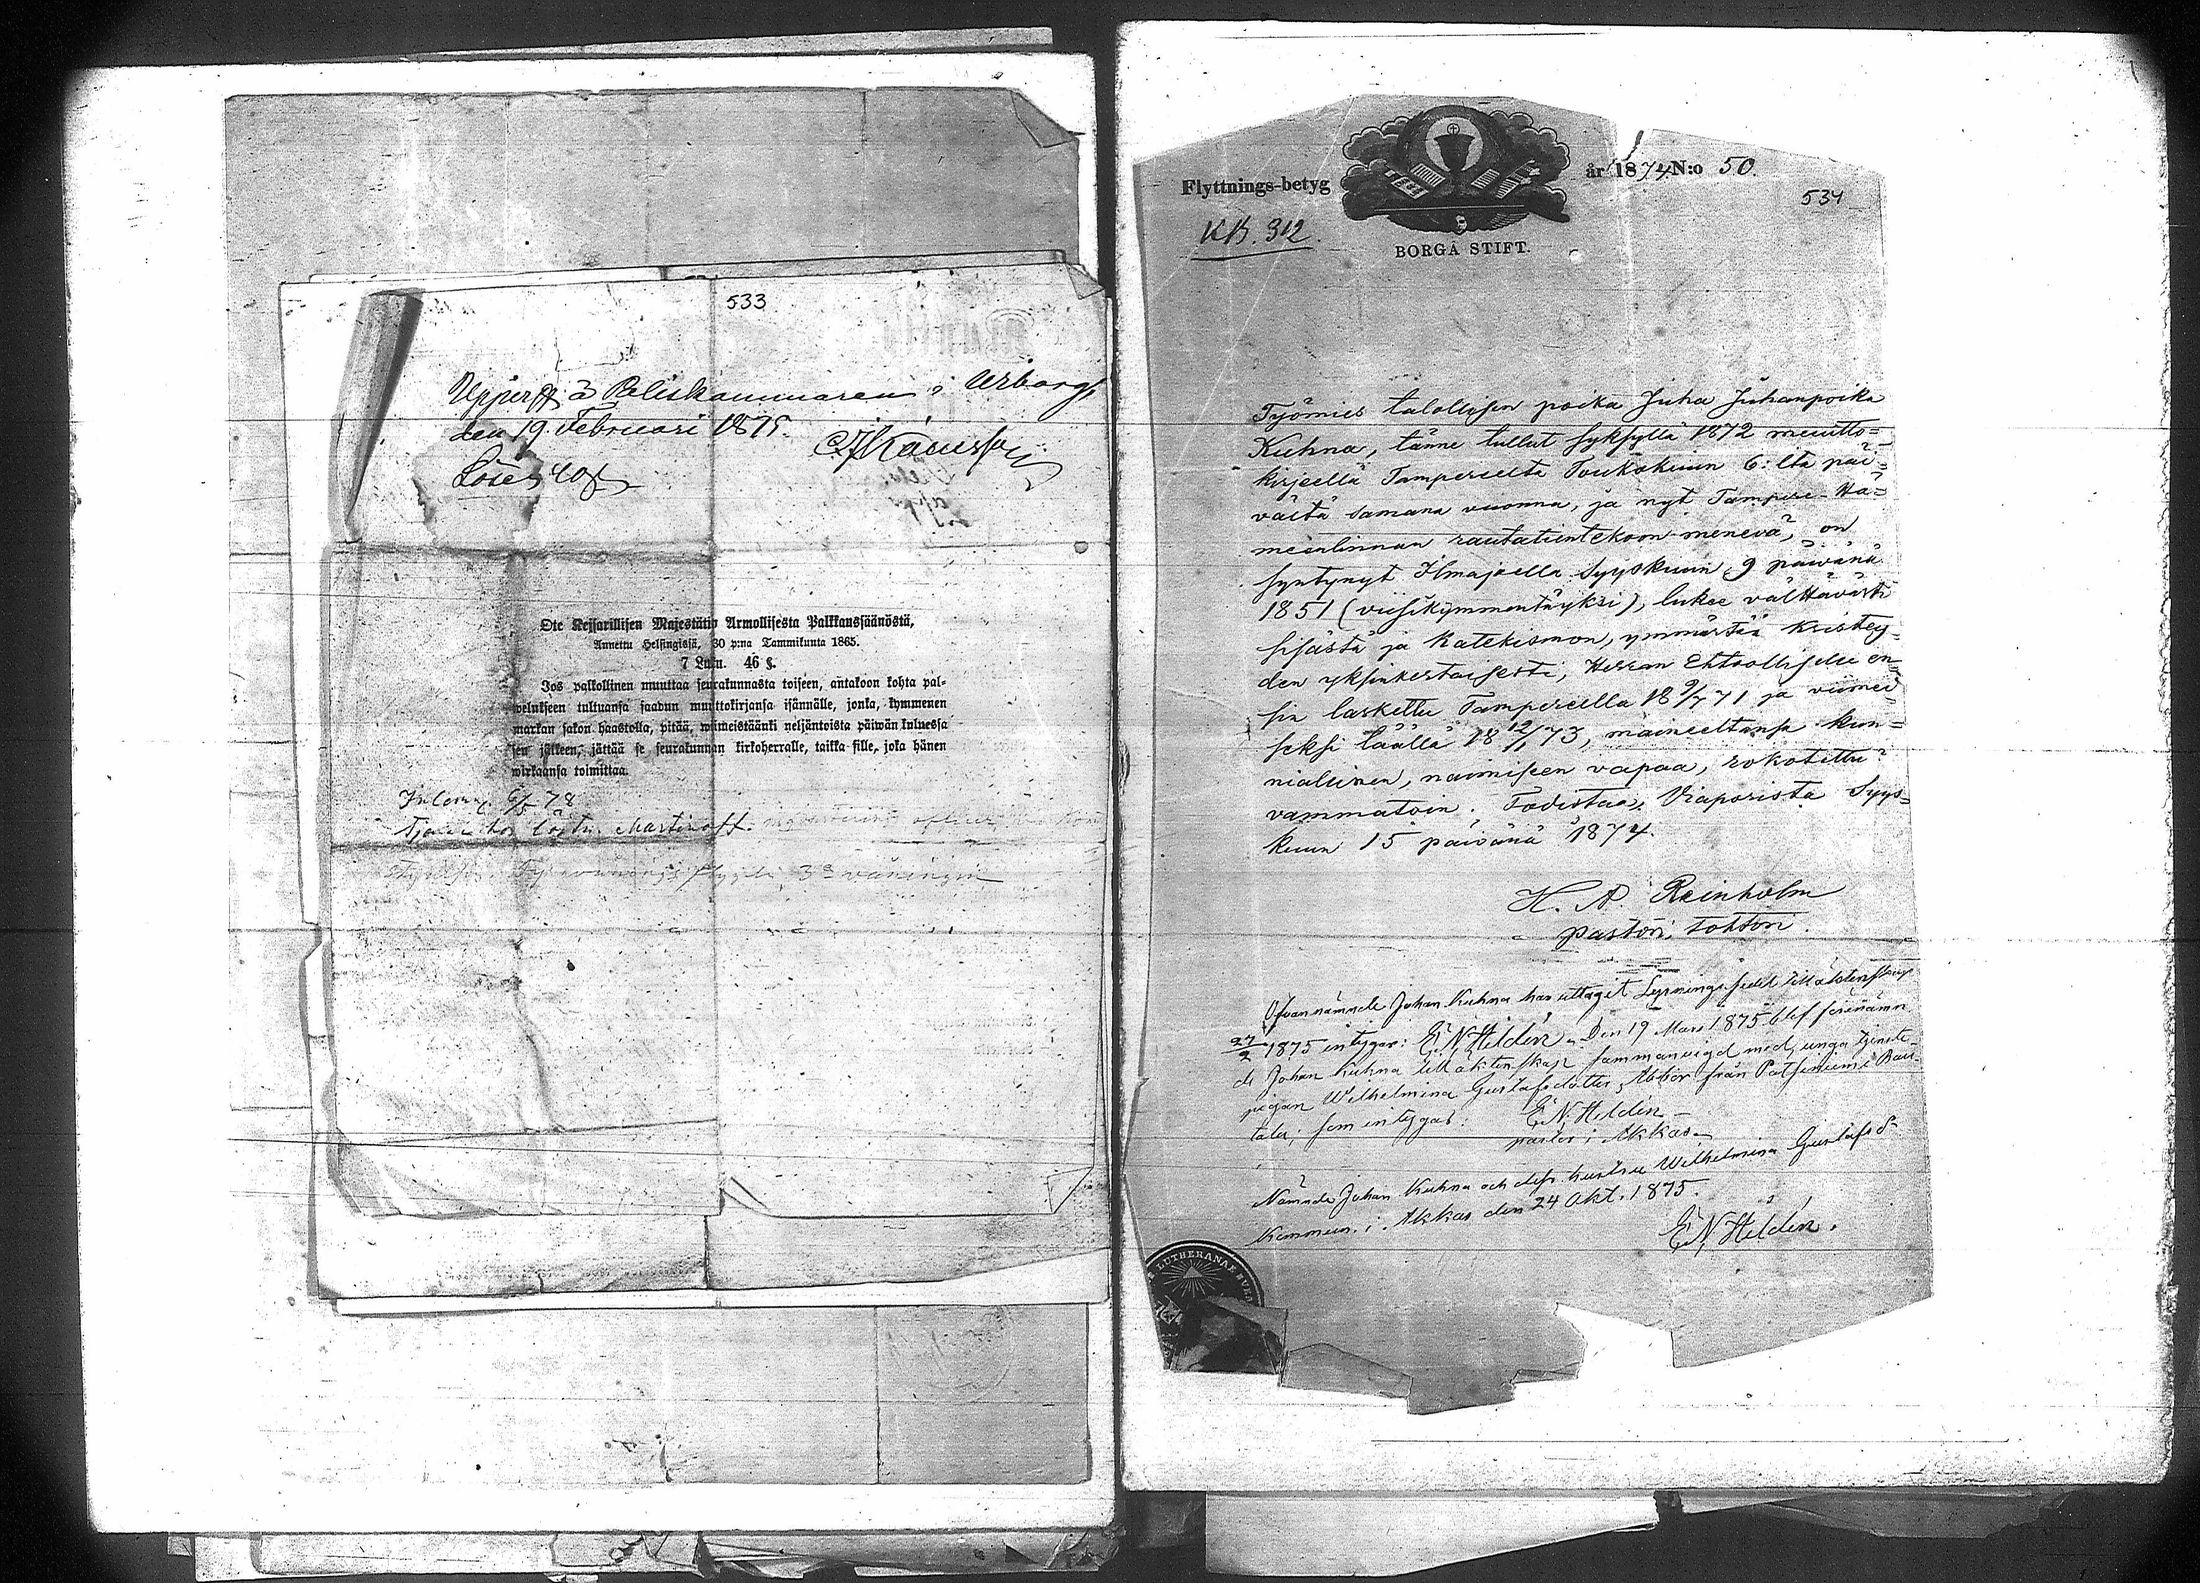 533
Uppv. å Poliskammaren i Wiborg,
den 19 Februari 1875.
Lösen 40
Ote Keisarillisen Majestätin Armollisesta Palkkaussäänöstä,
Annettu Helsingissä, 30 p:na Tammikuuta 1865.
7 Luku. 46 §.
Jos palkollinen muuttaa seurakunnasta toiseen, antakoon kohta pal-
welukseen tultuansa saadun muuttokirjansa isännälle, jonka, kymmenen
markan sakon haastolla, pitää, wiimeistäänki neljäntoista päiwän kuluessa
sen jälkeen, jättää se seurakunnan kirkoherralle, taikka sille, joka hänen
wirkaansa toimittaa.
6/5 78
Tjenar hos Martinoff
3e våningen
Flyttnings-betyg år 1874 N:o 50.
534
KB. 312.
BORGÅ STIFT.
Työmies talollisen poika Juha Juhanpoika
Kuhna, tänne tullut syksyllä 1872 muutto-
kirjeellä Tampereelta Toukokuun 6:lta päi-
vältä samana vuonna, ja nyt Tampere-Hä-
meenlinnan rautatientekoon menevä, on
syntynyt Ilmajoella Syyskuun 9 päivänä
1851 (viisikymmentäyksi), lukee välttävästi
sisästä ja Katekismon, ymmärtää kristey-
den yksinkertaisesti, Herran Ehtoolliselle en-
sin laskettu Tampereella 18 9/7 71 ja viimei-
seksi täällä 18 12/1 73, maineeltansa kun-
niallinen, naimiseen vapaa, rokotettu
vammatoin. Todistaa, Viaporista Syys-
kuun 15 päivänä 1874.
H. A. Reinholm
pastori, tohtori.
Ofvannämnde Johan Kuhna har uttagit Lysningssedel till äktenskap
27/2 1875 intygar: E. N. Heldén. Den 19 Mars 1875 blef förenämn-
de Johan Kuhna till äktenskap sammanvigd med unga tjenste-
pigan Wilhelmina Gustafsdotter från
tala; som intygas: E. N. Heldén
pastor i Akkas.
Nämnde Johan Kuhna och dess hustru Wilhelmina Gustafsdr
kommun. i Akkas den 24 Okt. 1875.
E. N. Heldén.
LUTHERANAE